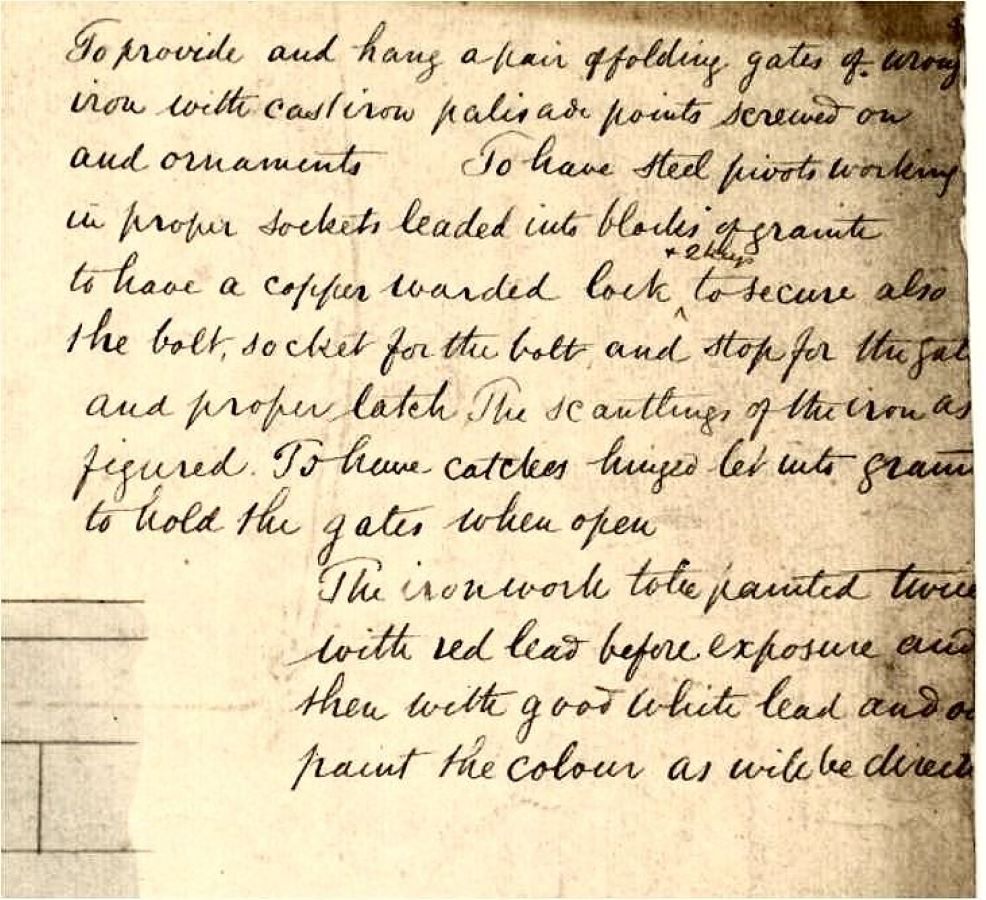 To provide and hang a pair of folding gates of wroug
iron with cast iron palisade points screwed on
and ornaments To have steel pivots working
in proper sockets leaded into blocks of granite
+ 2 keys
to have a copper warded lock ^ to secure also
the bolt, socket for the bolt and stop for the gat
and proper latch The scantlings of the iron as
figured. To have catches hinged let into grani
to hold the gates when open
The iron work to be painted twice
with red lead before exposure and
then with good white lead and o
paint the colour as will be directe